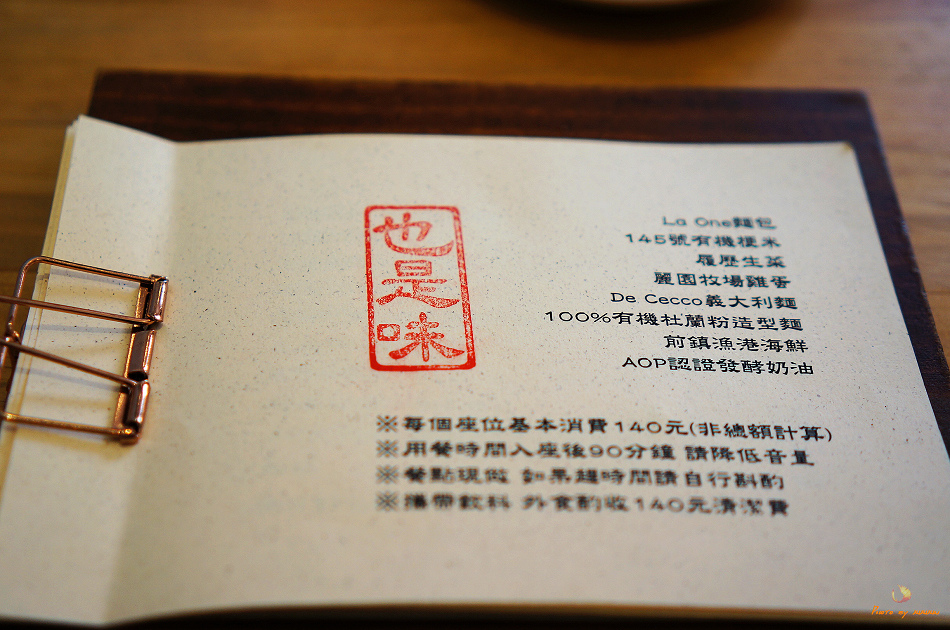 也是味
La One麵包
145號有機梗米
履歷生菜
麗園牧場雞蛋
De Cecco義大利麵
100%有機杜蘭粉造型麵
前鎮漁港海鮮
AOP認證發酵奶油
※每個座位基本消費140元(非總額計算)
※用餐時間入座後90分鐘 請降低音量
※餐點現做 如果趕時間請自行斟酌
※攜帶飲料 外食酌收140元清潔費